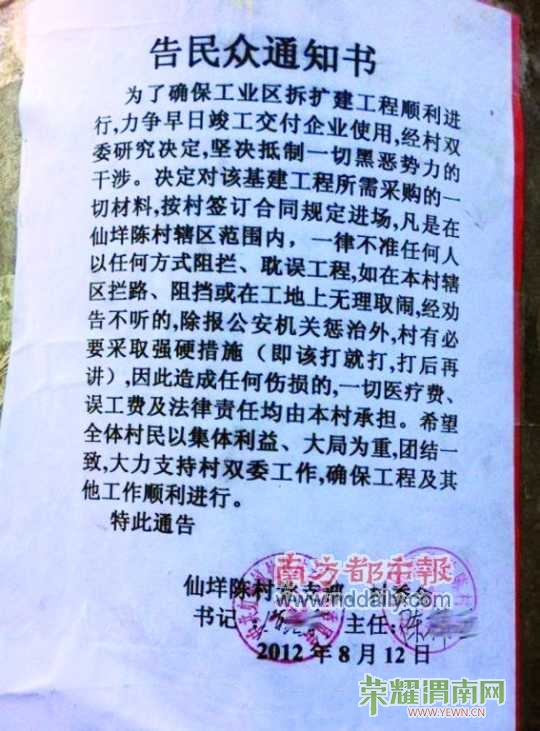 告民众通知书
为了确保工业区拆扩建工程顺利进
行,力争早日竣工交付企业使用,经村双
委研究决定,坚决抵制一切黑恶势力的
干涉。决定对该基建工程所需采购的一
切材料,按村签订合同规定进场,凡是在
仙垟陈村辖区范围内,一律不准任何人
以任何方式阻拦、耽误工程,如在本村辖
区拦路、阻挡或在工地上无理取闹,经劝
告不听的,除报公安机关惩治外,村有必
要采取强硬措施(即该打就打,打后再
讲),因此造成任何伤损的,一切医疗费、
误工费及法律责任均由本村承担。希望
全体村民以集体利益、大局为重,团结一
致,大力支持村双委工作,确保工程及其
他工作顺利进行。
特此通告
南方都市报
仙垟陈村 支部 村委会
www.nddaily.com
书记: 主任:陈
2012年8月12日
荣耀渭南网
WWW.YEWN.CN